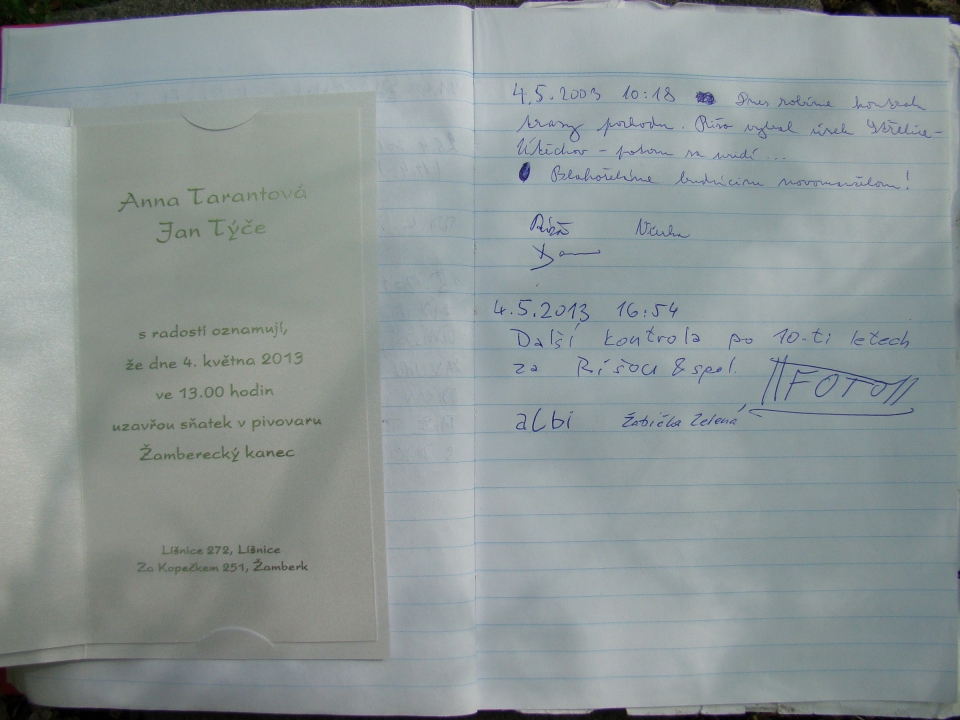 Anna Tarantová
Jan Týče
s radostí oznamují,
že dne 4. května 2013
ve 13.00 hodin
uzavřou sňatek v pivovaru
Žamberecký kanec
Líšnice 272, Líšnice
Za Kopečkem 251, Žamberk
4.5.2003 10:18 Dnes robíme kontrolu
trasy pochodu. Ríša vybral úsek Střelice-
Útěchov - potom sa uvidí...
Blahořečíme budúcim novomanželom!
Ríša
4.5.2013 16:54
Další kontrola po 10-ti letech
za Ríšou & spol.
FOTO
albi Žabička Zelená